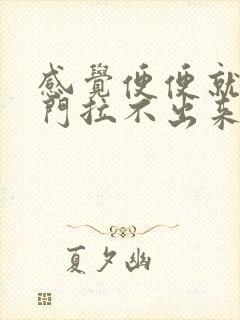 感覺便便就
門拉不出來
夏夕幽